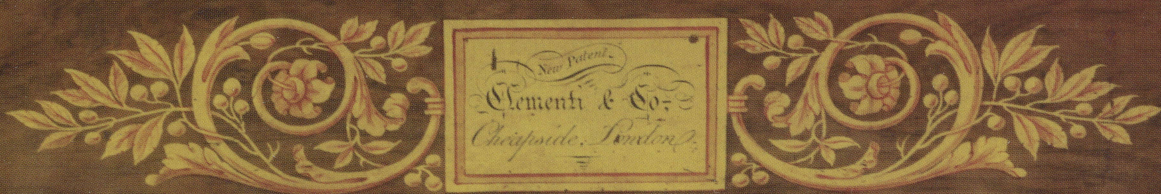 New Patent
Clementi & Co.
Cheapside, London.